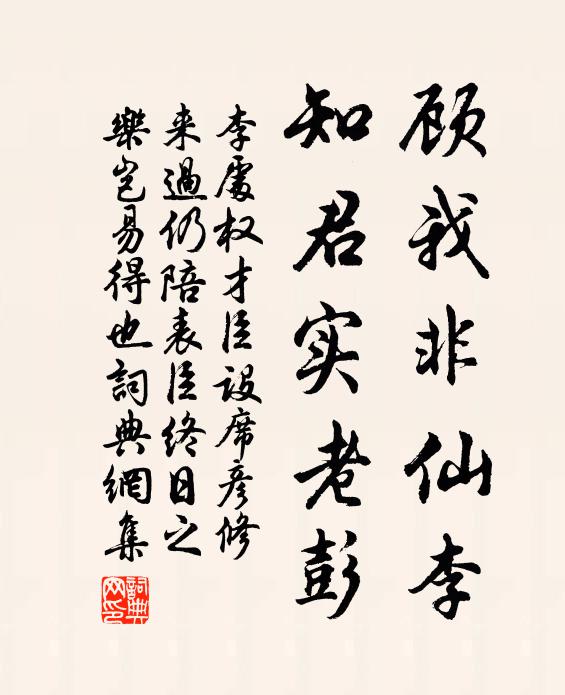 顾我非仙李
知君实老彭
李處权才臣設席彦修
来過仍陪表臣终日之
樂岂易得也詞典網集
詞典网印